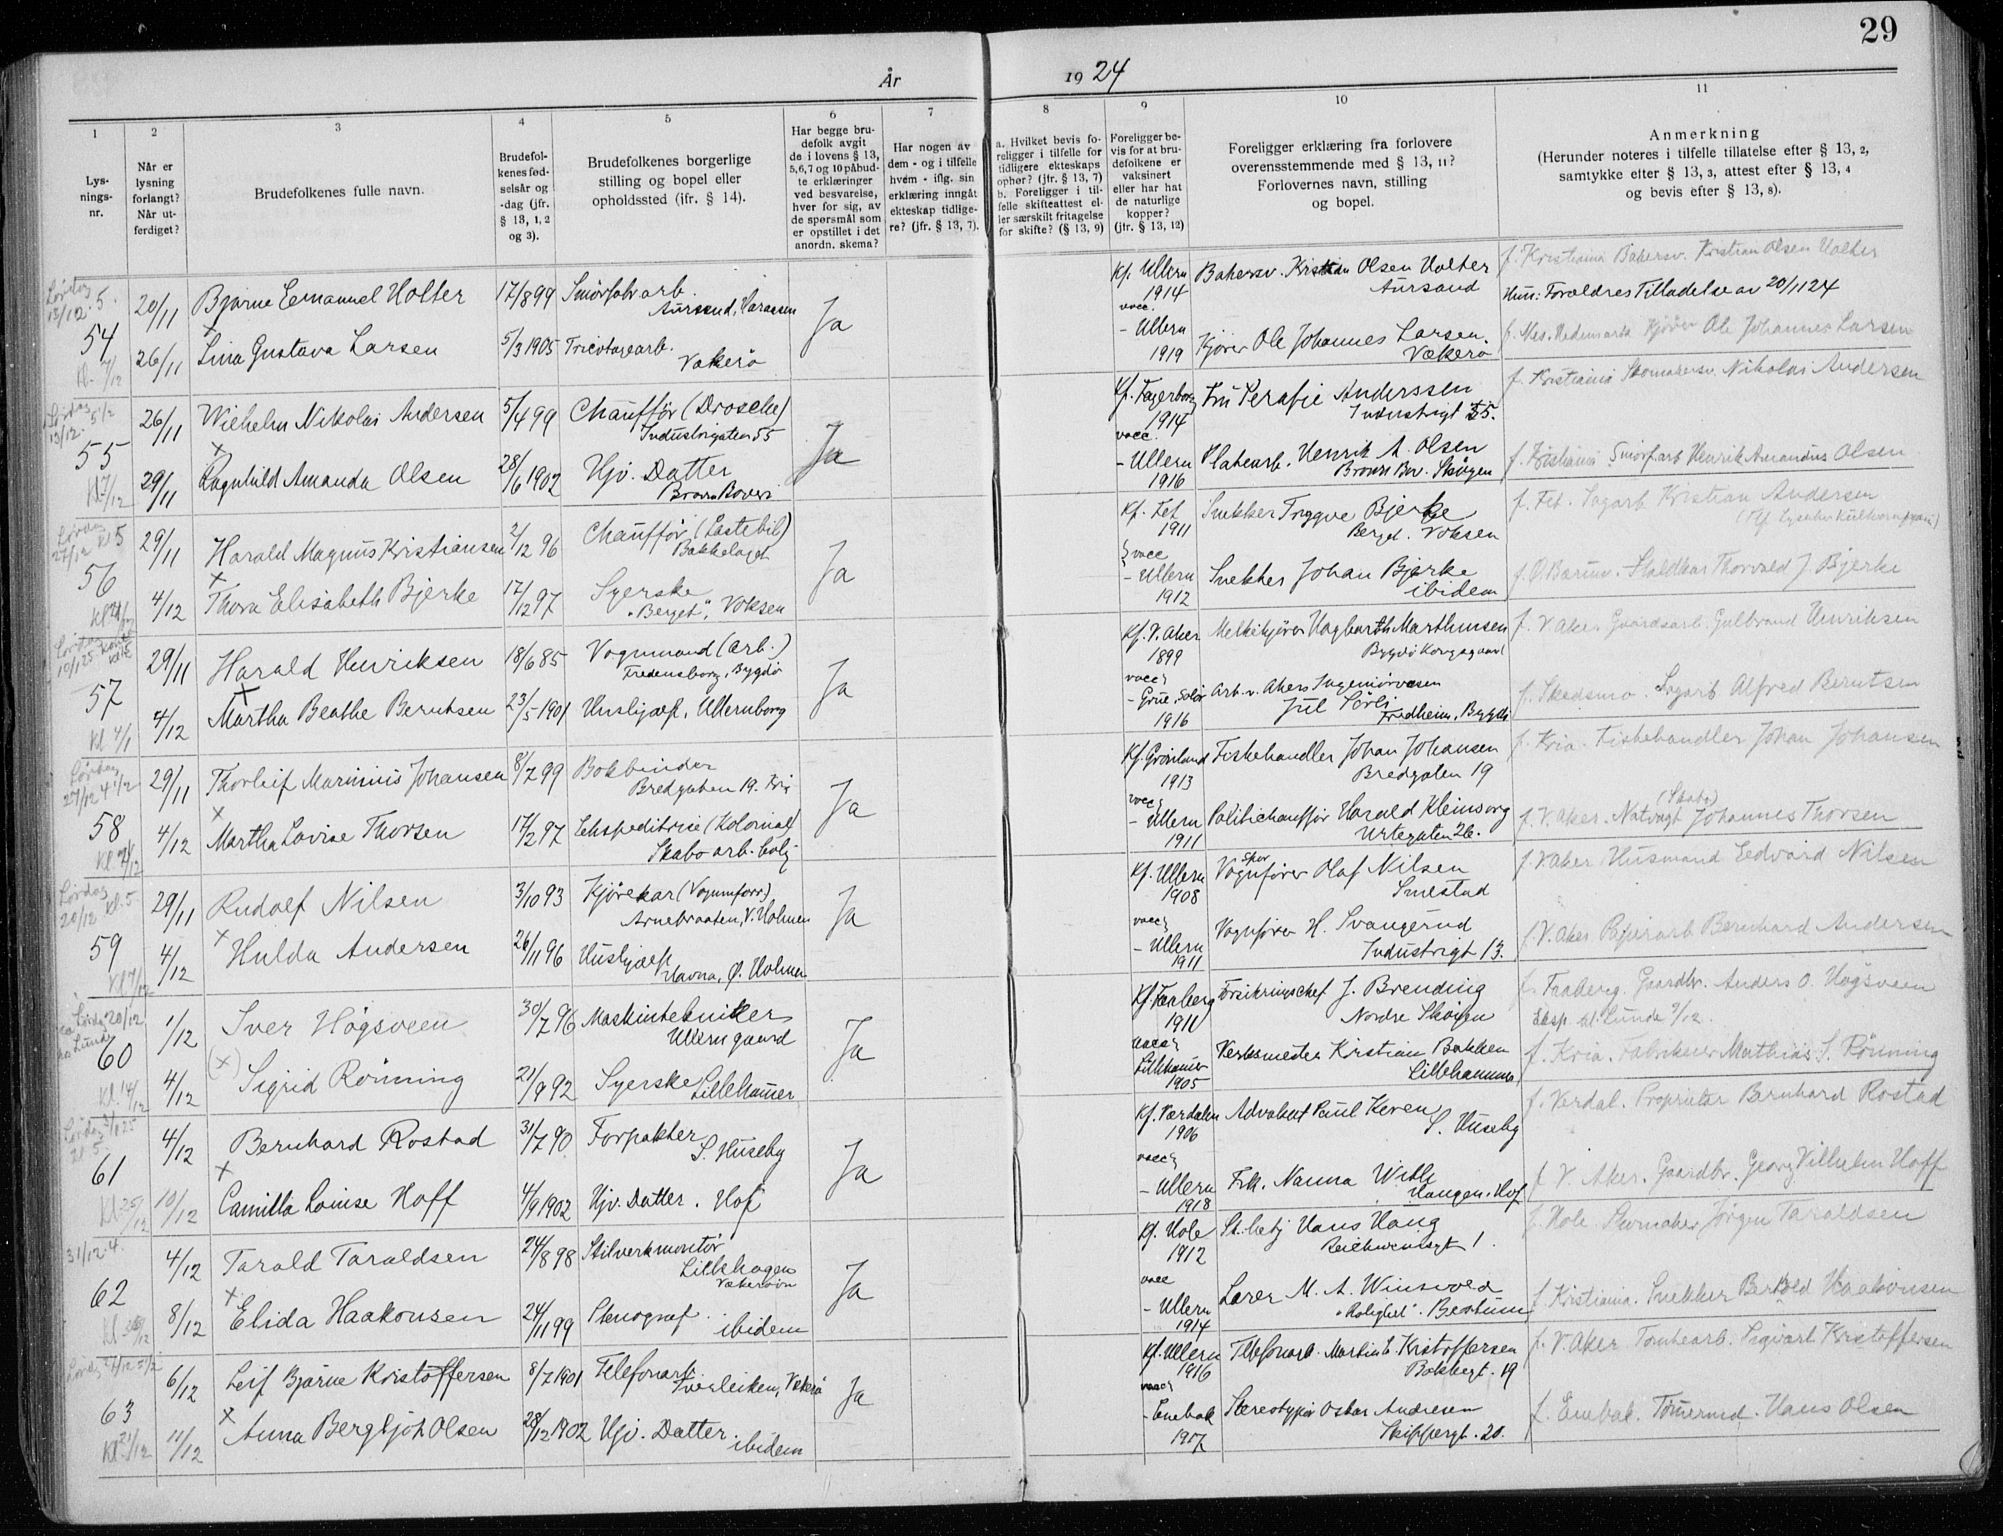 29
År 1924
1
Lys-
nings-
nr.
2
Når er
lysning
forlangt?
Når ut-
ferdiget?
3
Brudefolkenes fulle navn.
4
Brudefol-
kenes fød-
selsår og
-dag (jfr.
§ 13, 1, 2
og 3).
5
Brudefolkenes borgerlige
stilling og bopel eller
opholdssted (ifr. § 14).
6
Har begge bru-
defolk avgit
de i lovens § 13,
5,6,7 og 10 påbud-
te erklæringer
ved besvarelse,
hver for sig, av
de spørsmål som
er opstillet i det
anordn. skema?
7
Har nogen av
dem - og i tilfelle
hvem - iflg. sin
erklæring inngåt
ekteskap tidlige-
re? (jfr. § 13, 7).
8
a. Hvilket bevis fo-
religger i tilfelle for
tidligere ekteskaps
ophør? (jfr. § 13, 7)
b. Foreligger i til-
felle skifteattest el-
ler særskilt fritagelse
for skifte? (§ 13, 9)
9
Foreligger be-
vis for at bru-
defolkene er
vaksinert
eller har hat
de naturlige
kopper?
(jfr. § 13, 12)
10
Foreligger erklæring fra forlovere
overensstemmende med § 13, 11?
Forlovernes navn, stilling
og bopel.
11
Anmerkning
(Herunder noteres i tilfelle tillatelse efter § 13, 2,
samtykke efter § 13, 3, attest efter § 13, 4
og bevis efter § 13, 8).
Lørdag 13/12. 5.
54
20/11 Bjarne Emanuel Holter 17/8 99 Smørfabr arb. Ja Kf. Ullern 1914 Bakersv. Kristian Olsen Holter f. Kristiania Bakersv. Kristian Olsen Holter
Aursund Hun: Forældres Tilladelse av 20/11 24
26/11 Lina Gustava Larsen 5/3 1905 Tricotagearb. vacc. - Ullern 1919 Kjører Ole Johannes Larsen. f. Nes. Hedemark Kjører Ole Johannes Larsen
Vækerø Vækerø
Lørdag 13/12. 5 1/2
55
26/11 Wilhelm Nikolai Andersen 5/4 99 Chauffør (Drosche) Ja Kf. Fagerborg 1914 Fru Serafie Anderssen f. Kristiania Skomakersv. Nikolai Andersen
Industrigaten 55 Industrigt 55.
29/11 Ragnhild Amanda Olsen 28/6 1902 Hjv. Datter vacc. - Ullern 1916 Platearb. Henrik A. Olsen f. Kristiania Smørfarb Henrik Amandus Olsen
Brown Boveri Brown Bov. Skøyen
Lørdag 27/12 kl 5
56
29/11 Harald Magnus Kristiansen 2/12 96 Chauffør (Lastebil) Ja Kf. Fet 1911 Snekker Trygve Bjerke f. Fet. Sagarb Kristian Andersen
Bakkelaget Berget. Voksen
4/12 Thora Elisabeth Bjerke 17/12 97 Syerske vacc - Ullern 1912 Snekker Johan Bjerke f. Ø. Bærum. Staldkar Thorvald J. Bjerke
"Berget", Voksen ibidem
57
29/11 Harald Henriksen 18/6 85 Vognmand (arb.) Ja Kf. V. Aker 1899 Melkekjører Hagbarth Marthinsen f. V Aker Gaardsarb. Gulbrand Henriksen
Fredensborg, Bygdø Bygdø Kongsgaard
4/12 Martha Beathe Berntsen 23/5 1901 Hushjælp, Ullernborg vacc - Grue, Solør 1916 Arb. v. Akers Ingeniørvæsen f. Skedsmo. Sagarb Alfred Berntsen
Kl 4/1 Jul Sørli Fredheim, Bygdø
Lørdag 27/12 4 1/2
58
29/11 Thorleif Marinius Johansen 8/7 99 Bokbinder Ja Kf. Grønland 1913 Fiskehandler Johan Johansen f. Kria. Fiskehandler Johan Johansen
Bredgaten 19. Kria Bredgaten 19
4/12 Martha Lovise Thorsen 17/2 97 Ekspeditrice (Kolonial) vacc - Ullern 1911 Politichauffør Harald Kleinsorg f. V. Aker. Natvagt (Skabo) Johannes Thorsen
Skabo arb. bolig Urtegaten 26.
Lørdag 20/12 kl. 5
59
29/11 Rudolf Nilsen 3/10 93 Kjørekar (Vognmforr.) Ja Kf. Ullern 1908 Spor Vognfører Olaf Nilsen f. V Aker Husmand Edvard Nilsen
Arnebraaten, V. Holmen Smestad
4/12 Hulda Andersen 26/11 96 Hushjælp vacc - Ullern 1911 Vognfører H. Svangerud f. V. Aker. Papirarb Bernhard Andersen
Havna, Ø. Holmen Industrigt 13.
60
1/12 Iver Høgsveen 30/7 96 Maskintekniker Ja Kf. Faaberg 1911 Forsikringschef J. Brending f. Faaberg. Gaardbr. Anders O. Høgsveen
Ullern gaard Nordre Skøyen Eksp. til Lunde 9/12.
4/12 Sigrid Rønning 21/9 92 Syerske Lillehamer vacc Lillehamer 1905 Verksmester Kristian Bakken f. Kria. Fabrikeier Mathias S. Rønning
Kl. 14/12 Lillehammer
61
4/12 Bernhard Rostad 31/7 90 Forpakter Ja Kf. Værdalen 1906 Advokat Paul Keven f. Verdal. Proprietær Bernhard Rostad
S. Huseby S. Huseby
10/12 Camilla Louise Hoff 4/9 1902 Hjv. Datter. Hof vacc - Ullern 1918 Frk. Nanna Wille f V. Aker. Gaardbr. Georg Vilhelm Hoff
Haugen. Hof
31/12. 4.
62
4/12 Tarald Taraldsen 24/8 98 Stilverkmontør Ja Kf. Hole 1912 St. betj Hans Haug f. Hole. Skomaker Jørgen Taraldsen
Lillehagen Vækerøvn Reichweinsgt 1.
8/12 Elida Haakonsen 24/11 99 Stenograf. vacc - Ullern 1914 Lærer M. A. Winsvold f Kristiania. Snekker Bertold Haakonsen
ibidem "Rolighet". Bestum
63
6/12 Leif Bjarne Kristoffersen 8/7 1901 Telefonarb Ja Kf. Ullern 1916 Telefonarb. Martin E. Kristoffersen f. V. Aker Tomtearb. Sigvart Kristoffersen
Vækerø Bokkergt. 19
11/12 Anna Bergljot Olsen 28/12 1902 Hjv. Datter ibidem vacc - Enebak 1917 Stereotypør Oskar Andresen f. Enebak. Tømermd. Hans Olsen
Kl 21/12 Skippergt. 20.